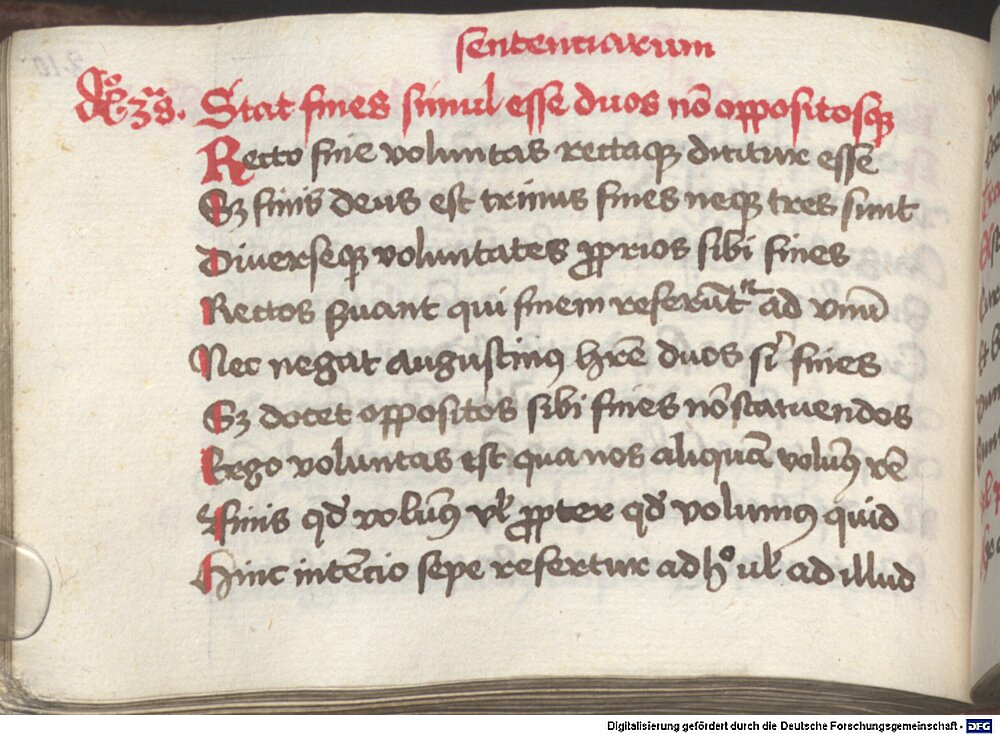 sentenciarum
Stat fines simul esse duos nō oppositosqꝫ
Recto fine voluntas rectaqꝫ dicitur esse
Sꝫ finis deus est trinus fines neqꝫ tres sunt
Diuerseqꝫ voluntates ꝓprios sibi fines
Rectos ẜuant qui finem referūtr ad vnū
Nec negat augustinꝰ hr̄e duos sil̕ fines
Sꝫ docet oppositos sibi fines nō statuendos
Ergo voluntas est qua nos aliquā volumꝰ rē
Finis qd̄ volumꝰ vl̕ ꝓpter qd̄ volumꝰ quid
Hinc intēcio sepe refertur ad hͦ ul̕ ad illud
Digitalisierung gefördert durch die Deutsche Forschungsgemeinschaft - DFG